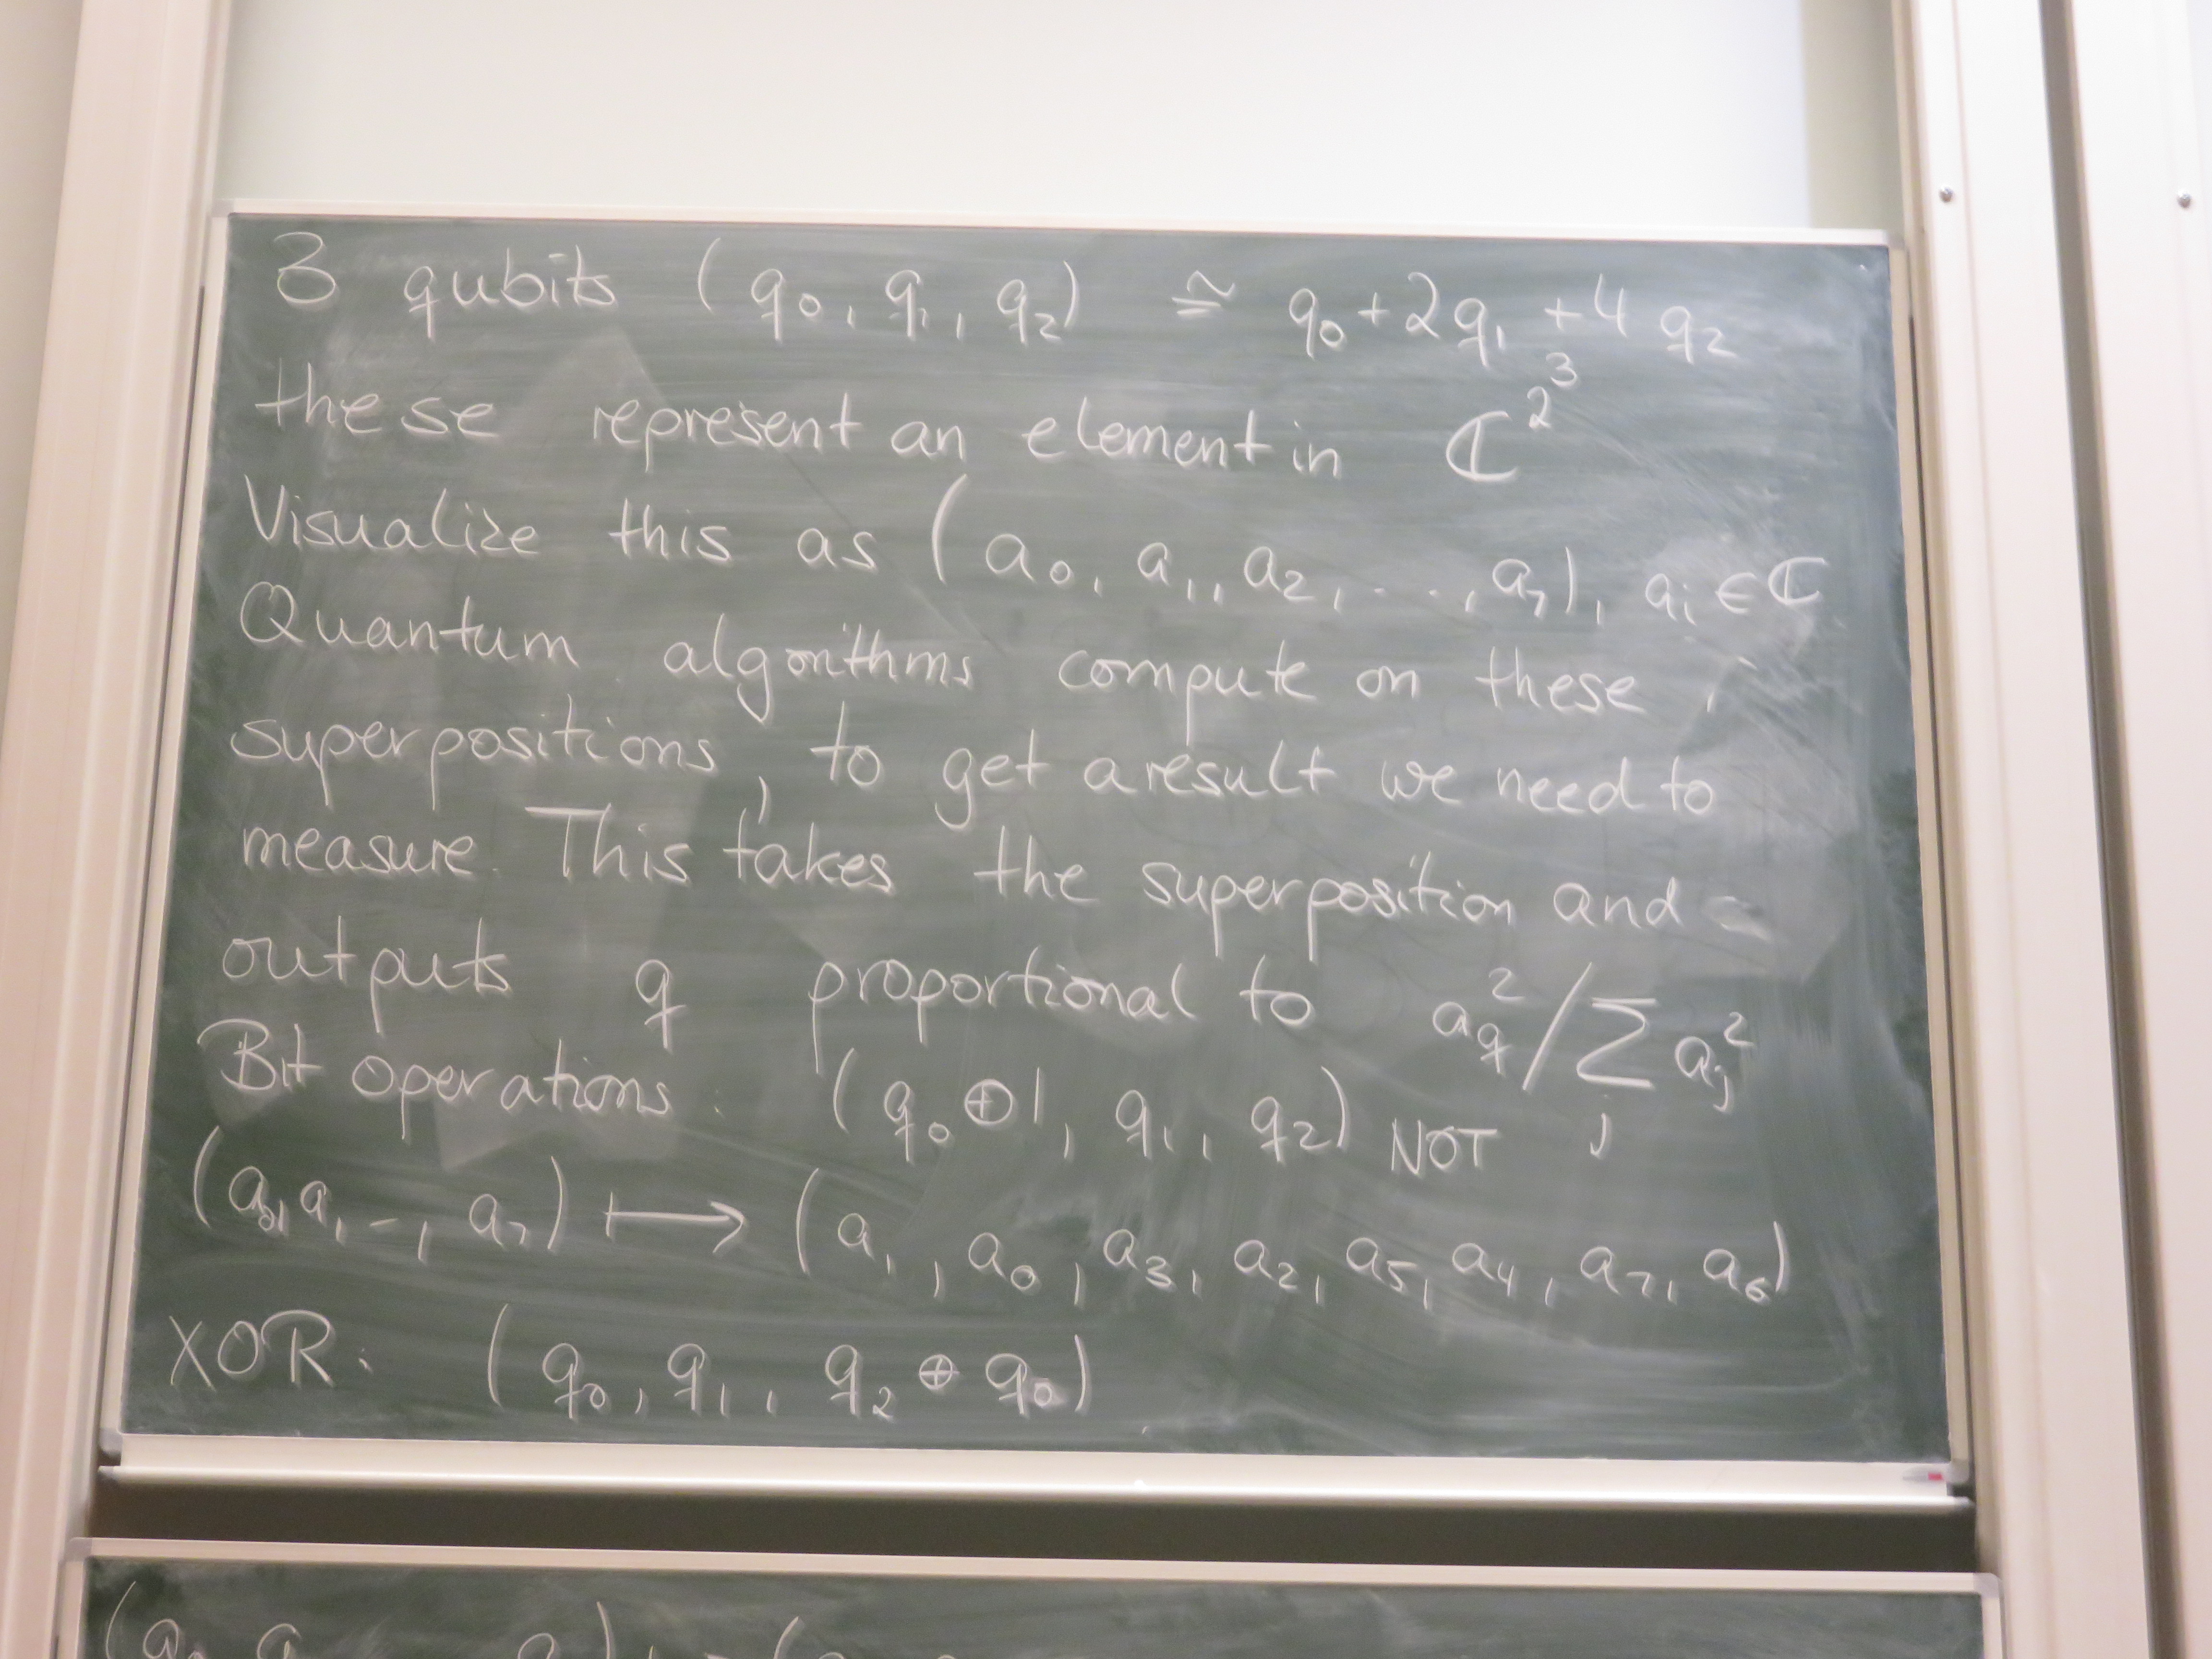 3 qubits (q₀, q₁, q₂) ≅ q₀ + 2q₁ + 4q₂
these represent an element in ℂ^2^3
Visualize this as (a₀, a₁, a₂, ..., a₇), aᵢ ∈ ℂ
Quantum algorithms compute on these
superpositions, to get a result we need to
measure. This takes the superposition and
outputs q proportional to a_q² / ∑_j a_j²
Bit operations: (q₀ ⊕ 1, q₁, q₂) NOT
(a₀, a₁ -, a₇) ⟼ (a₁, a₀, a₃, a₂, a₅, a₄, a₇, a₆)
XOR: (q₀, q₁, q₂ ⊕ q₀)